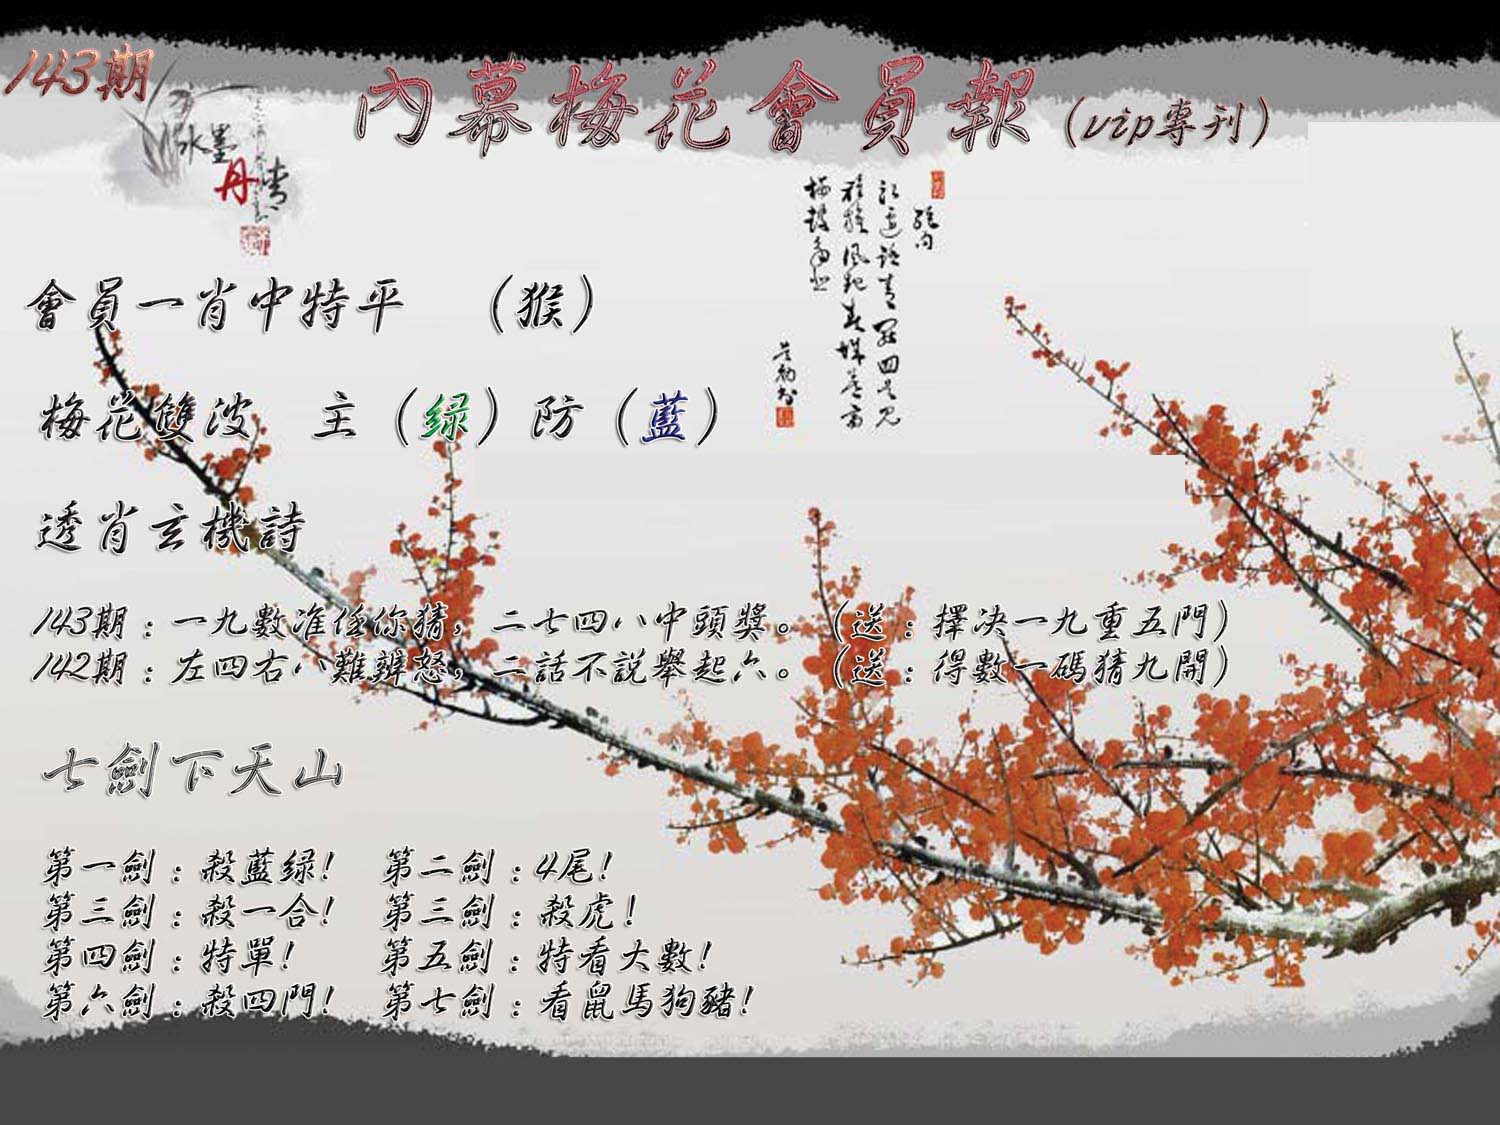 143期
內幕梅花會員報(vip專刊)
水墨
丹青
會員一肖中特平 (猴)
梅花雙波 主(绿)防(藍)
透肖玄機詩
143期:一九數准任你猜,二七四八中頭獎。(送:擇决一九重五門)
142期:左四右八難辨怒,二話不説舉起六。(送:得數一碼猜九開)
七劍下天山
第一劍:殺藍绿! 第二劍:4尾!
第三劍:殺一合! 第三劍:殺虎!
第四劍:特單! 第五劍:特看大數!
第六劍:殺四門! 第七劍:看鼠馬狗豬!